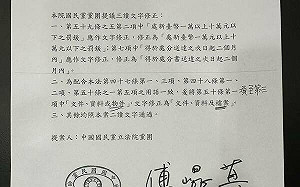 本院國民黨黨團提議三讀文字修正：
一、第五十九條之五第二項中「處新臺幣一萬以上十萬元以
下之罰鍰」應作文字修正，修正為「處新臺幣一萬元以上十
萬元以下之罰鍰」；第七項中「得於處分送達之次日起二個月
內」應作文字修正，修正為「得於處分書送達之次日起二個
月內」。
二、為配合本法第四十七條第一、三項、第四十八條第一、
二項、第五十條之一第五項之用語一致，爰將第五十條第一項
項中「文件、資料或物件」，文字修正為「文件、資料及檔案」。
三、其餘均照本案二讀文字通過。
提案人：中國國民黨立法院黨團
傅崐萁